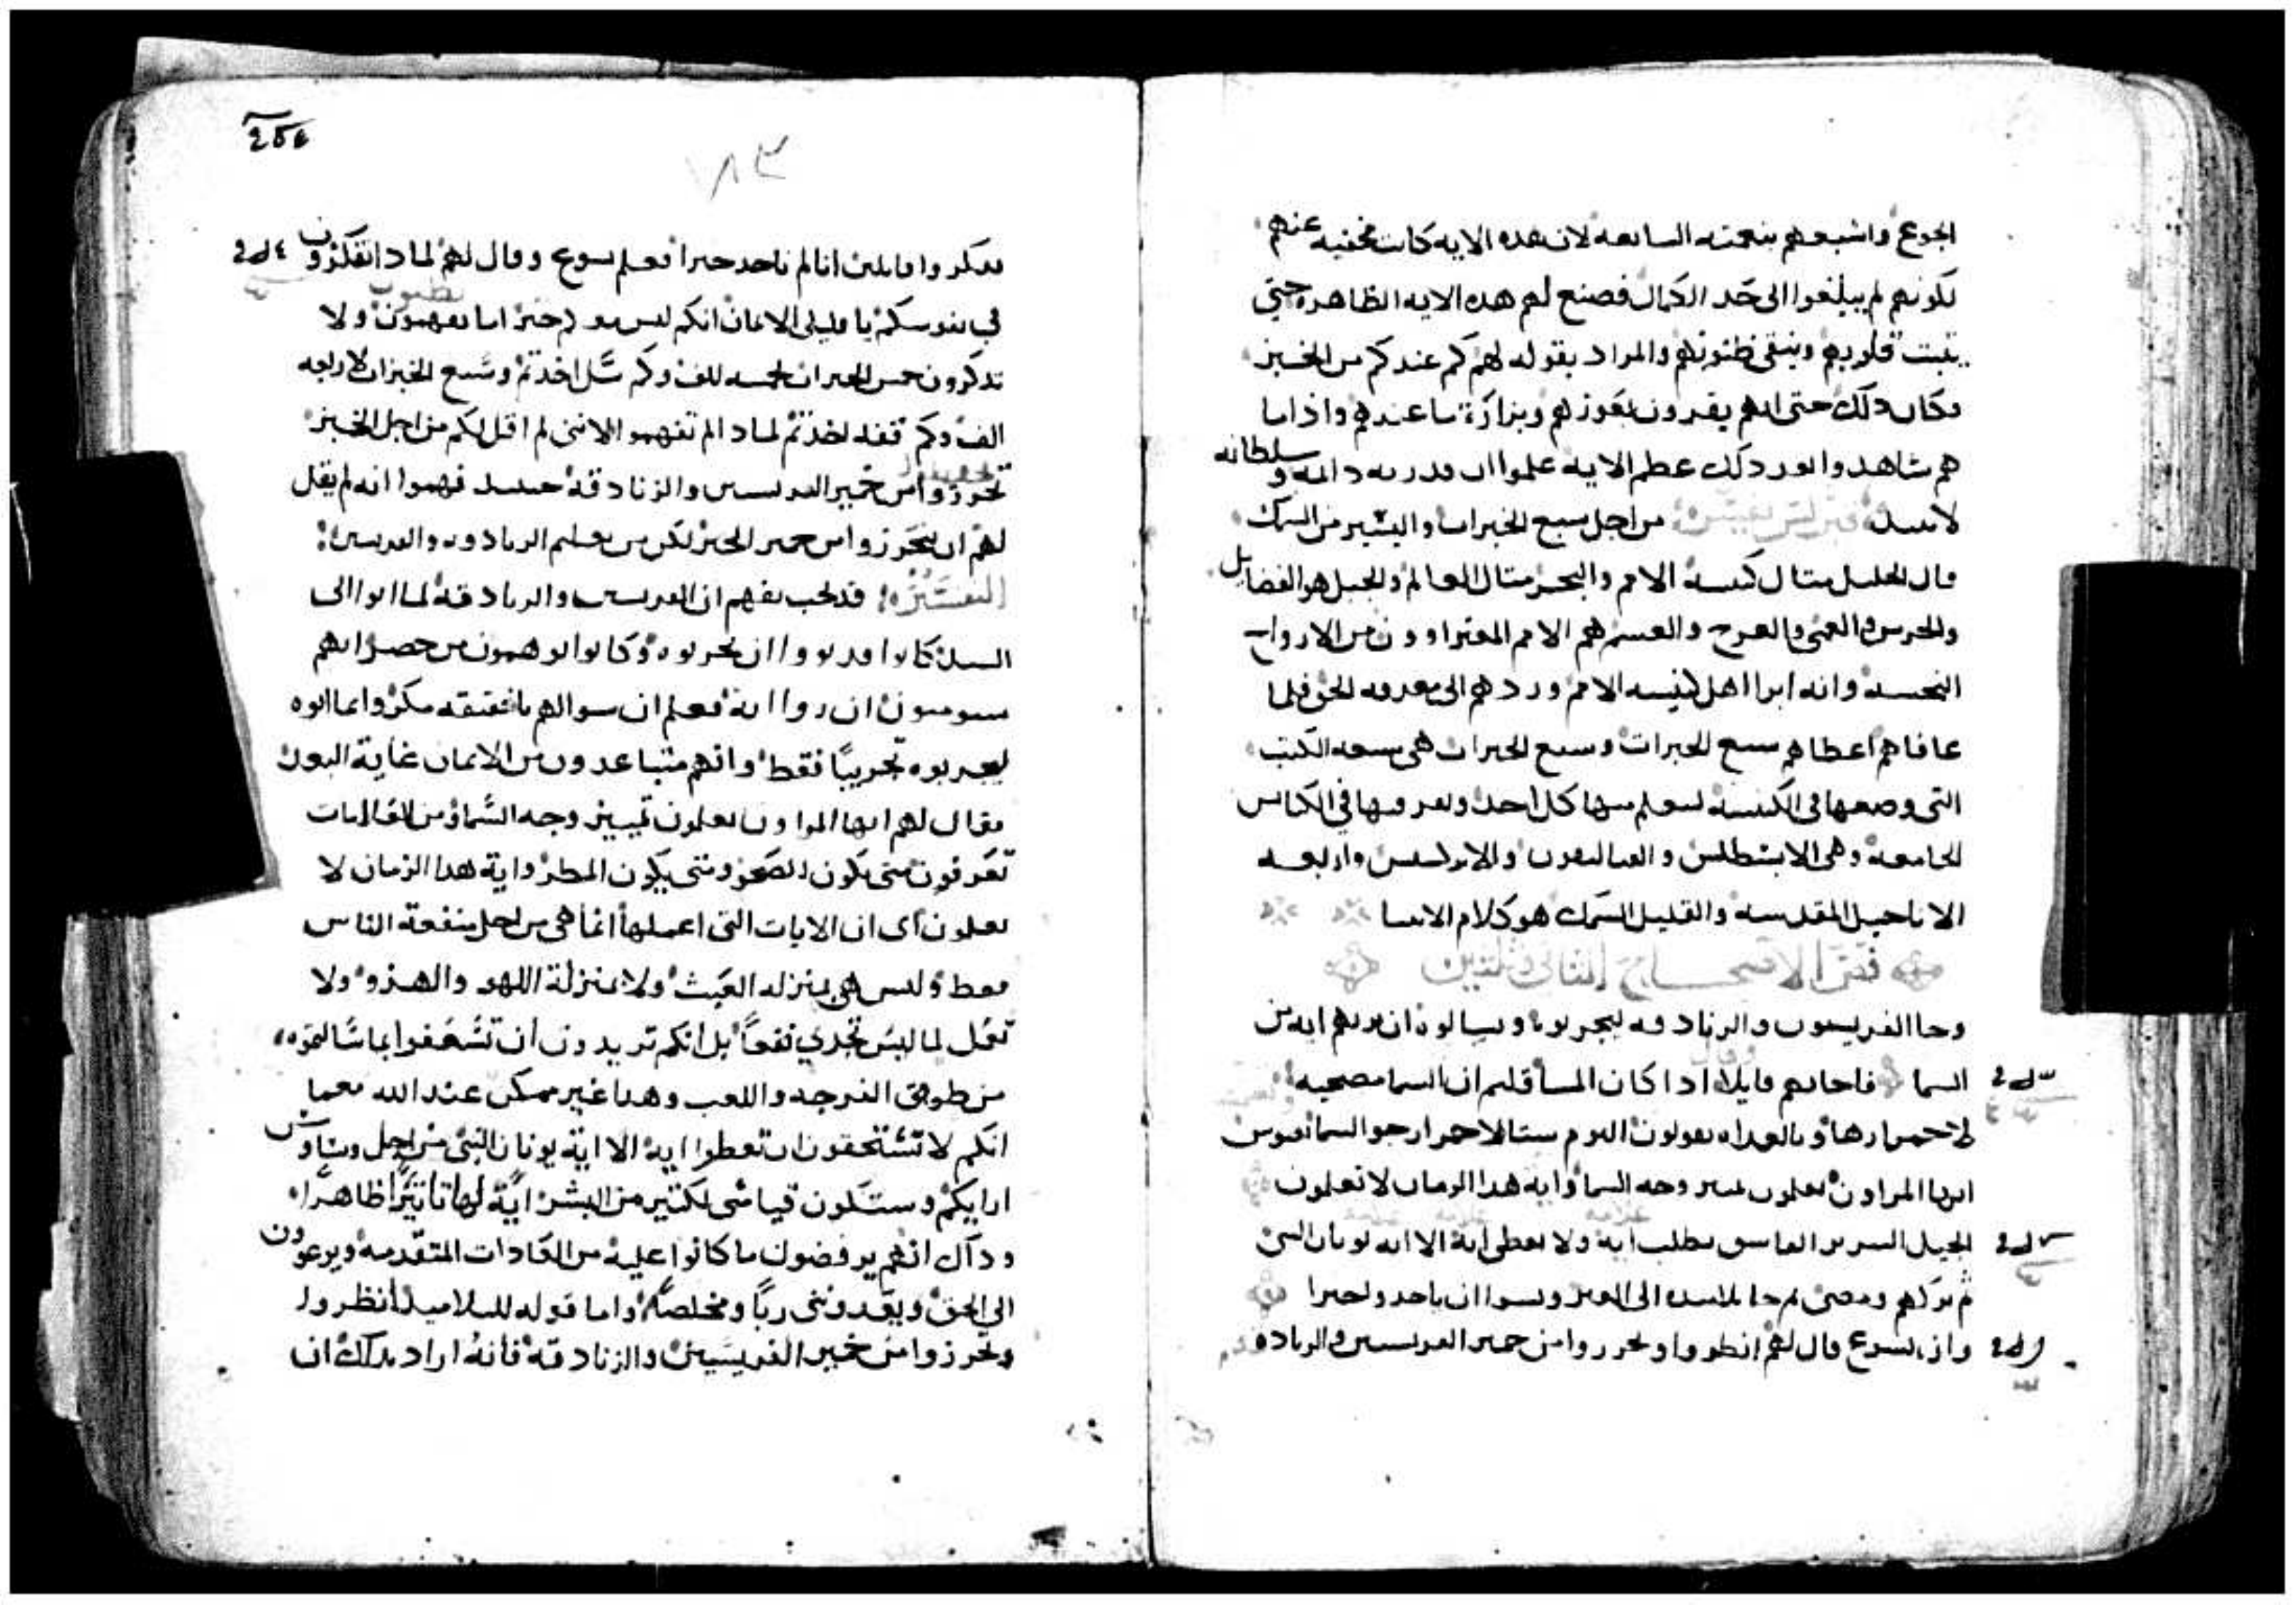 الجوع واشبعهم بنعمته السابعه لان هده الايه كانت مخفيه عنهم
لكونهم لم يبلغوا الى حد الكمال فصنع لهم هده الايه الظاهرة حتي
يتبت قلوبهم وينقي ظنونهم والمراد بقوله لهم كم عندكم من الخبز
فكان دلك حتى انهم يقرون بعوزهم وبنزارة ما عندهم واذا ما
هم شاهدوا بعد دلك عظم الايه علموا ان قدرته دايمه وسلطانه
من اجل سبع الخبزات واليسير من السمك
قال الجليل متال كنيسة الامم والبحر متال العالم والجبل هو الفضايل
والخرس والعمي والعرج والعسم هم الامم المعتراوون من الارواح
النجسه وانه ابرا اهل كنيسه الامم وردهم الى معرفه الحق فلما
عافاهم اعطاهم سبع الخبزات وسبع الخبزات هي سبعه الكتب
التي وضعها في الكنيسة ليتعلم منها كل احد ويقر فيها في الكنايس
الجامعه وهي الابسطلس والقتاليقون والابركسس واربعه
الاناجيل المقدسه والقليل السمك هو كلام الانبيا
فص الاصحاح التاني وتلتين
وجا الفريسيون والزنادقه ليجربوه وسالوه ان يريهم ايه من
السما فاجابهم قايلا ادا كان المسا قلتم ان السما مصحيه
لاحمرارها وبالغداه تقولون اليوم ستا لاحمرار جو السما العبوس
ايها المراون تعلمون تمييز وجه السما واية هدا الزمان لا تعلمون
الجيل الشرير الفاسق يطلب اية ولا يعطى اية الا اية يونان النبي
تم تركهم ومضى تم جا تلاميده الى العبر ونسوا ان ياخدوا خبزا
وان يسوع قال لهم انظروا وتحرزوا من خمير الفريسيين والزنادقه
١٨٣
ففكروا قايلين اننا لم ناخد خبزا فعلم يسوع وقال لهم لمادا تفكرون
في نفوسكم يا قليلي الايمان انكم ليس معكم خبز اما تفهمون ولا
تدكرون خمس الخبزات لخمسه الف وكم سل اخدتم وسبع الخبزات لاربعه
الف وكم قفه اخدتم لمادا لم تفهموا لانني لم اقل لكم من اجل الخبز
تحرزوا من خمير الفريسيين والزنادقة حينيد فهموا انه لم يقل
لهم ان يتحرزوا من خمير الخبز لكن من تعليم الزنادقه والفريسين
التفسير قد يجب نفهم ان الفريسين والزنادقة لما اتوا الى
السيد كانوا قد نووا ان يجربوه وكانوا يوهمون من حضر انهم
سيومنون ان راوا اية فعلم ان سوالهم بالحقيقه مكر وانما اتوه
ليجربوه تجريبًا فقط وانهم متباعدون من الايمان غاية البعد
فقال لهم ايها المراون تعلمون تمييز وجه السماء من العلامات
تعرفون متى يكون الصحو ومتى يكون المطر واية هدا الزمان لا
تعلمون اى ان الايات التى اعملها انما هي من اجل منفعة الناس
فقط وليس هي بمنزله العبث ولا بمنزلة اللهو والهزو ولا
تعمل لما ليس تجدي نفعًا بل انكم تريدون ان
من طريق الفرجه واللعب وهدا غير ممكن عند الله
انكم لا تستحقون ان تعطوا اية الا اية يونان النبي من اجل
ارايكم وستكون قيامتى لكتير من البشر ايةً لها تاتيرًا ظاهرًا
وداك انهم يرفضون ما كانوا علية من العادات المتقدمه ويرعوون
الى الحق ويتخدونني ربًا ومخلصًا واما قوله للتلاميد انظروا
وتحرزوا من خمير الفريسيين والزنادقة فانه اراد بدلك ان